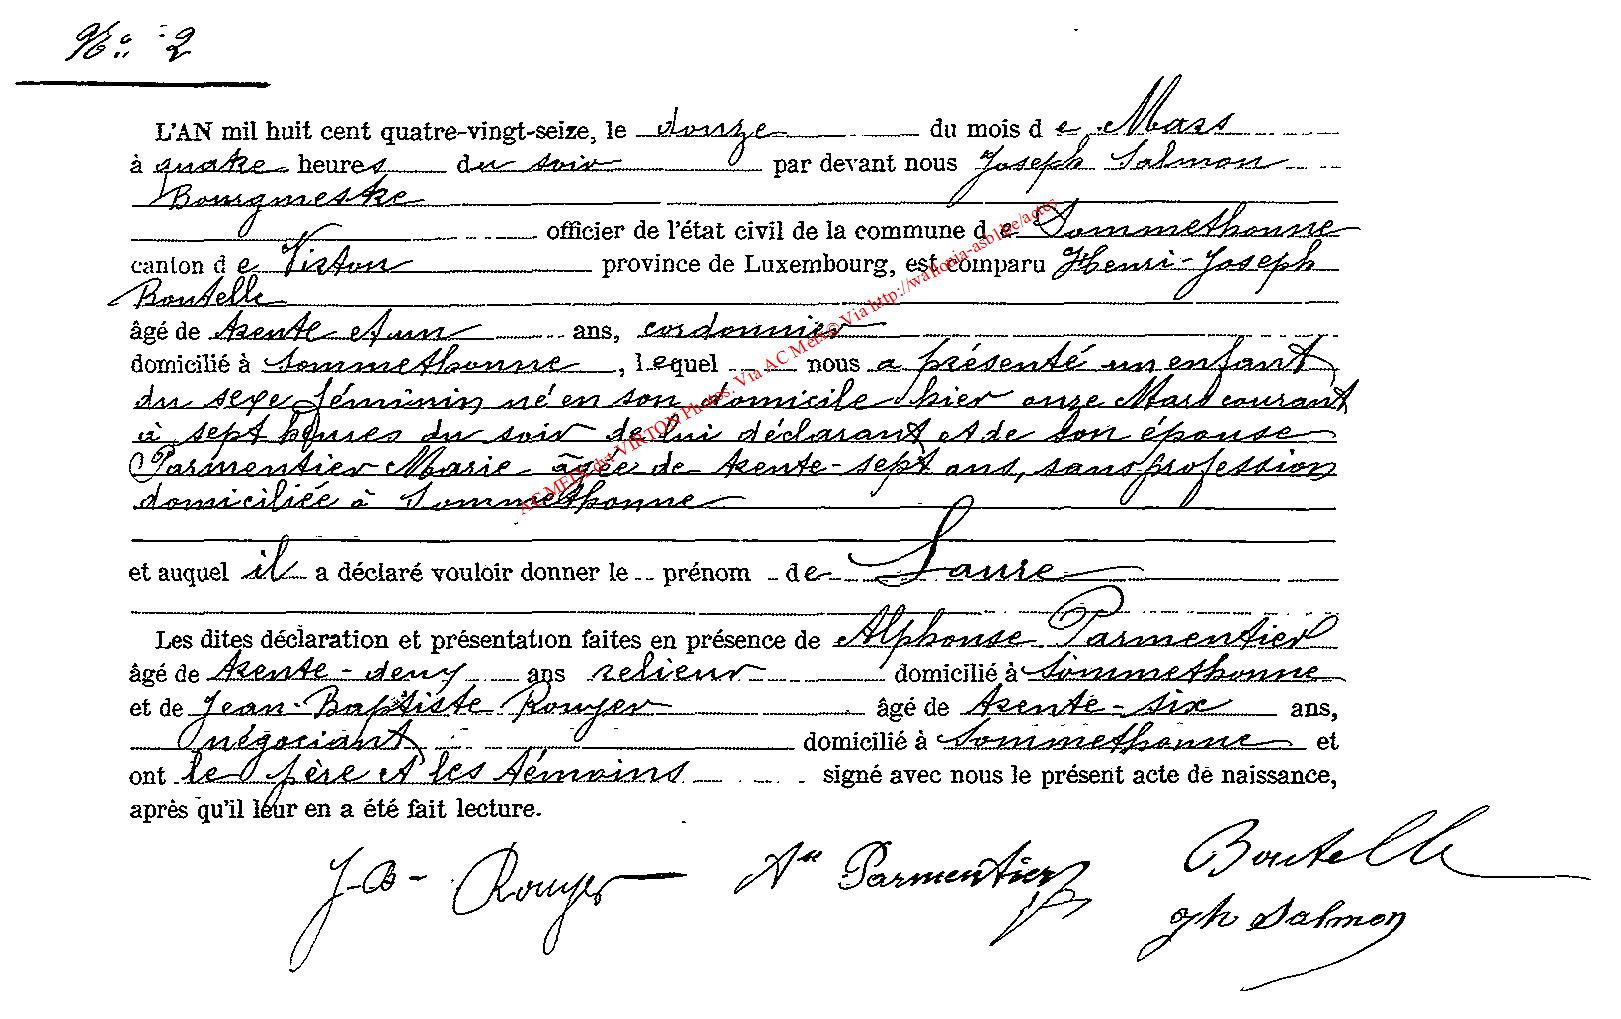 No 2
L'AN mil huit cent quatre-vingt-seize, le douze du mois de Mars
à quatre heures du soir par devant nous Joseph Salmon
Bourgmestre
officier de l'état civil de la commune de Sommethonne
canton de Virton province de Luxembourg, est comparu Henri-Joseph
Boutelle
âgé de trente et un ans, cordonnier
domicilié à Sommethonne, lequel nous a présenté un enfant
du sexe féminin né en son domicile hier onze Mars courant
à sept heures du soir de lui déclarant et de son épouse
Parmentier Marie âgée de trente-sept ans, sans profession
domiciliée à Sommethonne
et auquel il a déclaré vouloir donner le prénom de Laure
Les dites déclaration et présentation faites en présence de Alphonse Parmentier
âgé de trente-deux ans relieur domicilié à Sommethonne
et de Jean-Baptiste Rouyer âgé de trente-six ans,
négociant domicilié à Sommethonne et
ont le père et les témoins signé avec nous le présent acte de naissance,
après qu'il leur en a été fait lecture.
J-B- Rouyer Ase Parmentier Boutelle
Jph Salmon
AC METX du VIRTON Photos: Via AC Metx© Via http://wallonia-asbl.be/actes